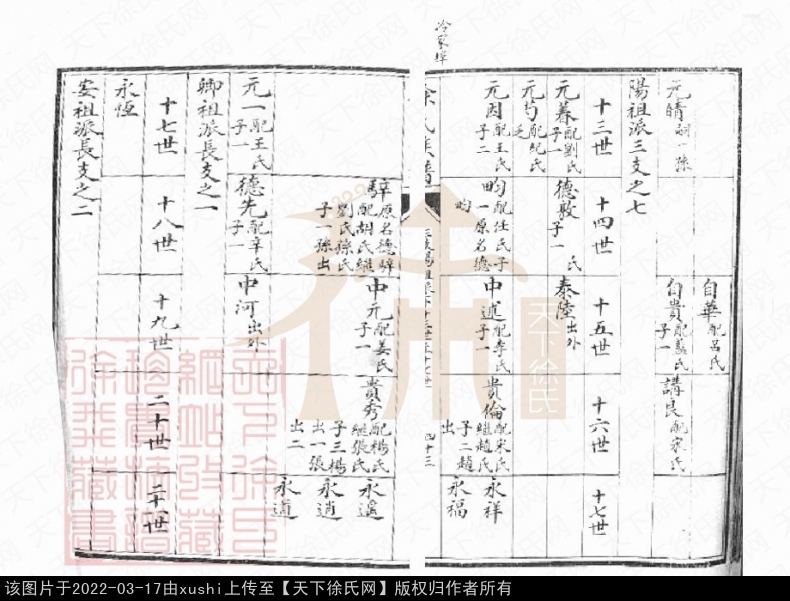 冷家埠
元晴嗣一孫
自華配呂氏
自貴配姜氏
子一
講良配宋氏
陽祖派三支之七
十三世
十四世
十五世
十六世
十七世
元春配劉氏
子一
德敦
子一
氏
泰陸出外
元芍配紀氏
乏
元因配王氏
子二
畇配任氏子
一原名德
畇
中道配李氏
子一
貴倫配宋氏
繼趙氏
子二趙
出
永祥
永福
徐氏族譜
四十三
騂原名德騂
配胡氏繼
劉氏徐氏
子一孫出
中元配姜氏
子一
貴秀配楊氏
繼張氏
子三楊
出一張
出二
永遙
永逍
永適
元一配王氏
子一
德先配辛氏
子一
中河出外
卿祖派長支之一
十七世
十八世
十九世
二十世
二十一世
永恆
安祖派長支之二
天下徐氏
该图片于2022-03-17由xushi上传至【天下徐氏网】版权归作者所有